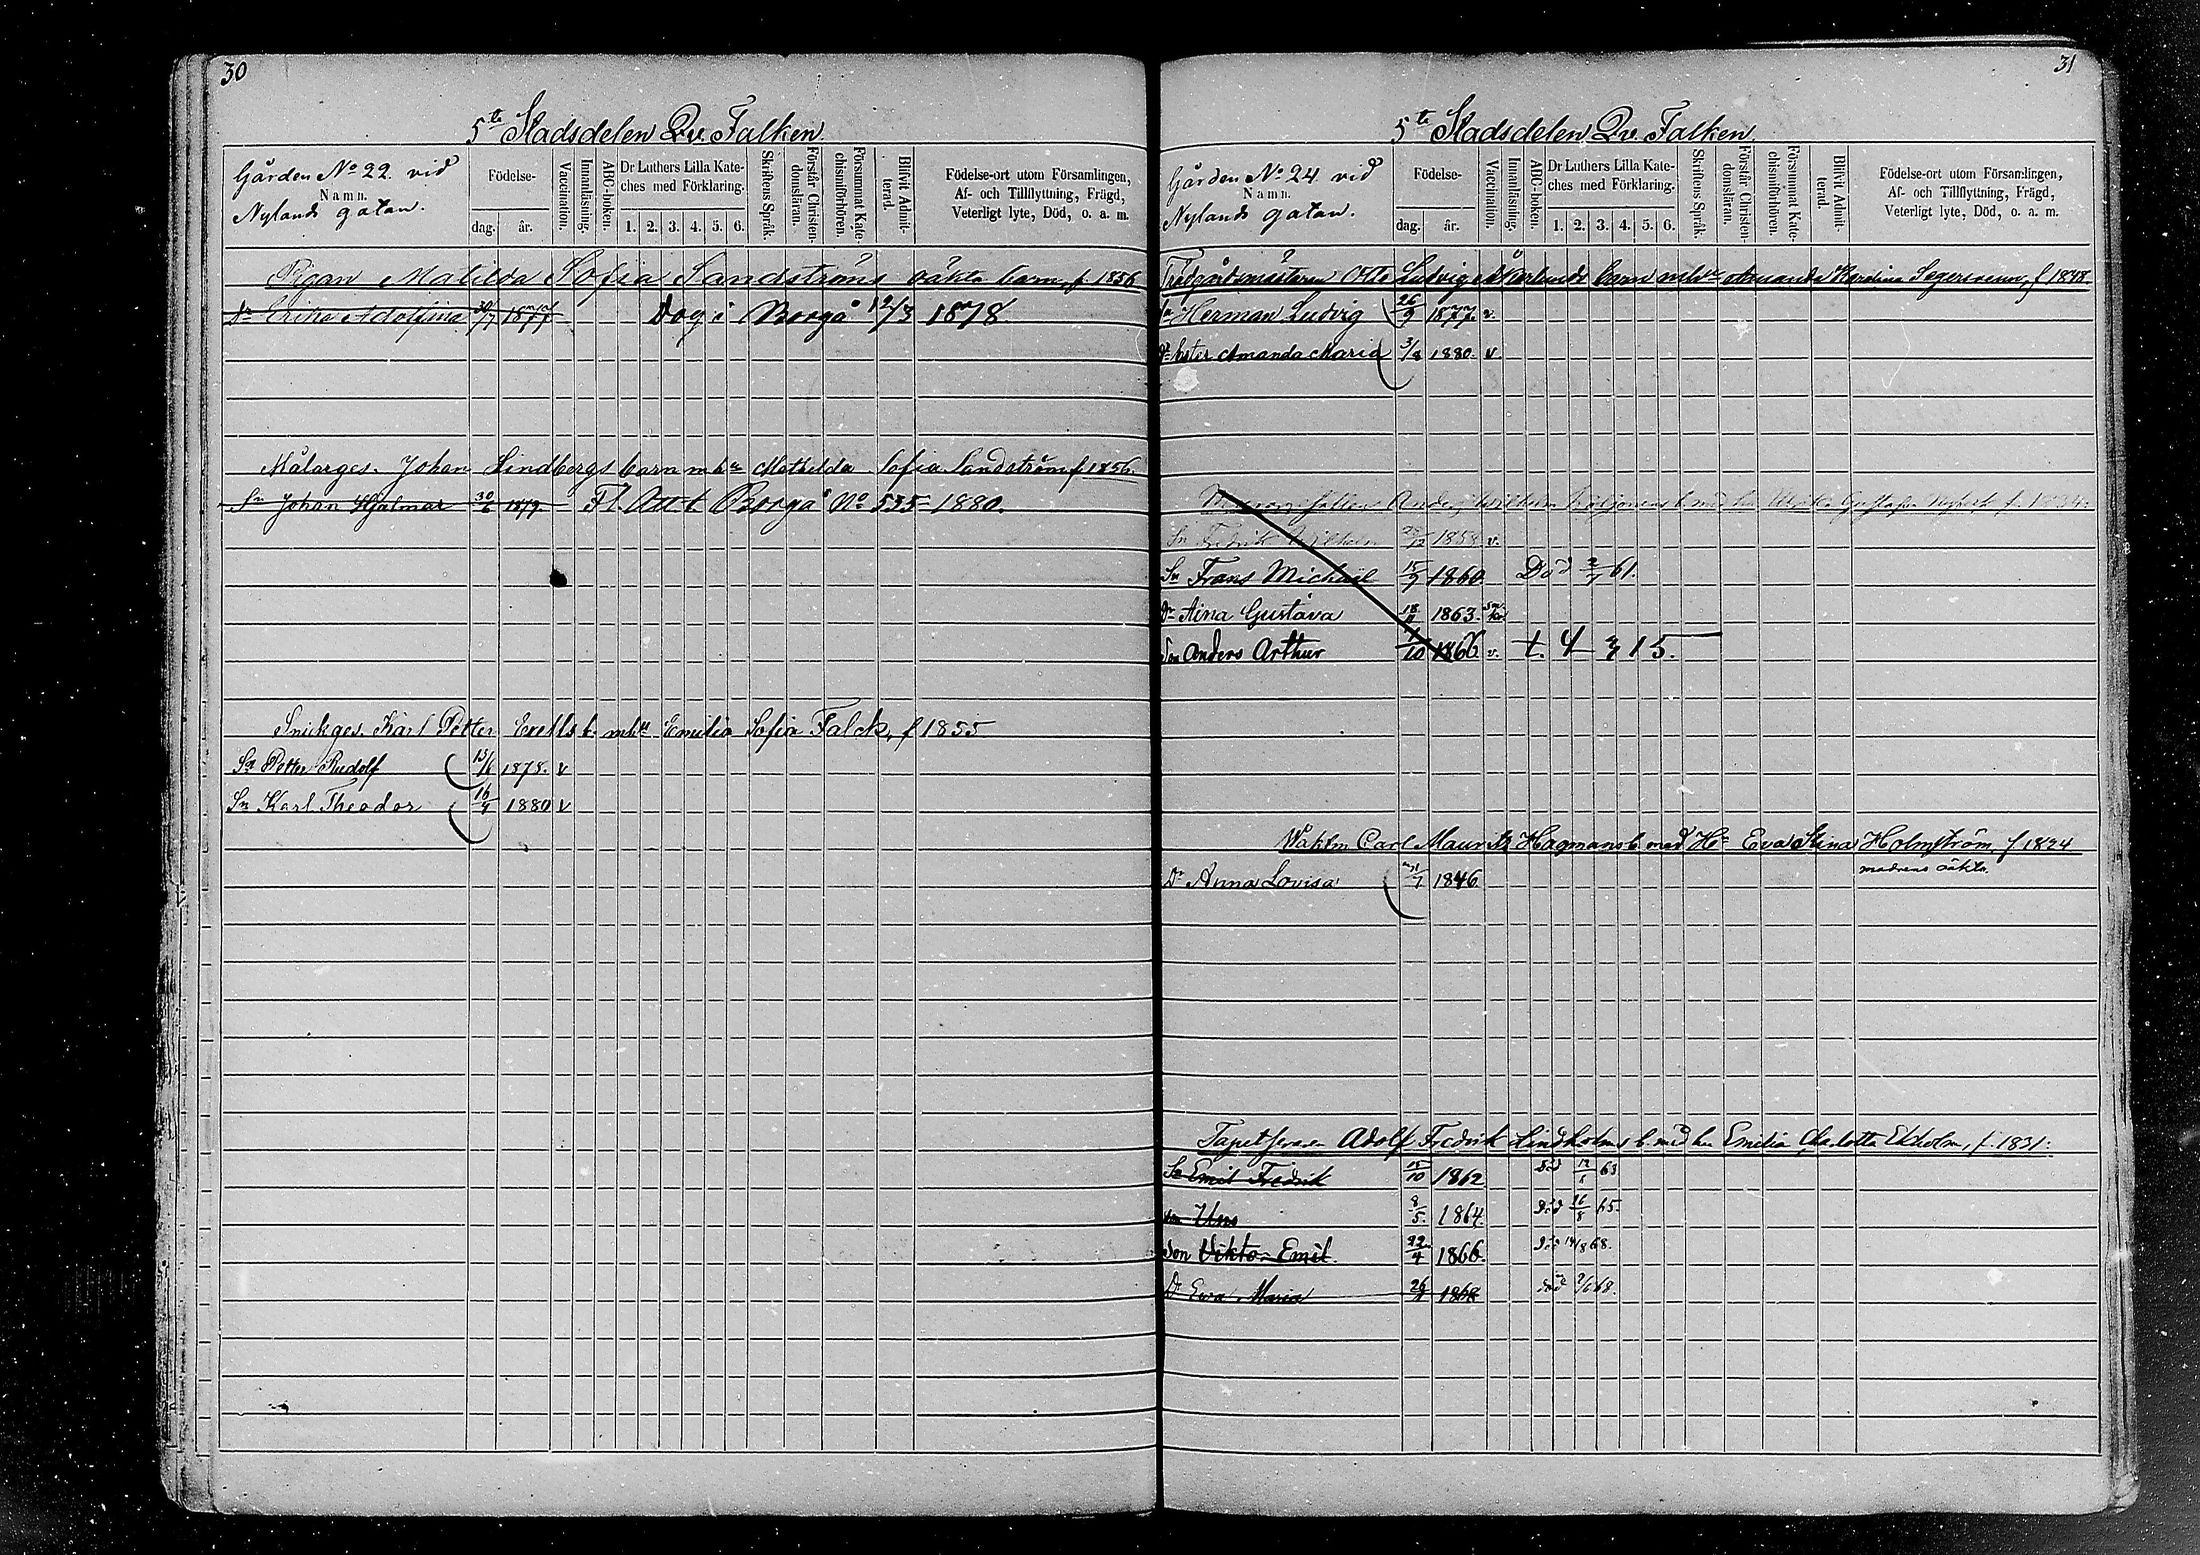 30
5te Stadsdelen Qv. Falken.
Gården No 22. vid
Namn.
Nylands gatan.
Födelse-
dag. år.
Vaccination.
Innanläsning.
ABC-boken.
Dr Luthers Lilla Kate-
ches med Förklaring.
1. 2. 3. 4. 5. 6.
Skriftens Språk.
Förstår Christen-
domsläran.
Försummat Kate-
chismiförhören.
Blifvit Admit-
terad.
Födelse-ort utom Församlingen,
Af- och Tillflyttning, Frägd,
Veterligt lyte, Död, o. a. m.
Pigan Matilda Sofia Sandströms oäkta barn, f. 1856
Dr Erika Adolfina 30/7 1877 Dog i Borgå 12/3 1878
Målarges. Johan Lindbergs barn m hu Mathilda Sofia Sandström f 1856.
Sn Johan Hjalmar 30/6 1879. Fl. Att-t Borgå No 535 1880.
Snickges. Karl Petter Erells b. m hu Emilia Sofia Falck, f 1855
Sn Petter Rudolf 15/6 1878. v
Sn Karl Theodor 16/4 1880 v
31
5te Stadsdelen Qv. Falken.
Gården No 24 vid
Namn.
Nylands gatan.
Födelse-
dag. år.
Vaccination.
Innanläsning.
ABC-boken.
Dr Luthers Lilla Kate-
ches med Förklaring.
1. 2. 3. 4. 5. 6.
Skriftens Språk.
Förstår Christen-
domsläran.
Försummat Kate-
chismiförhören.
Blifvit Admit-
terad.
Födelse-ort utom Församlingen,
Af- och Tillflyttning, Frägd,
Veterligt lyte, Död, o. a. m.
Trädgårdsmästaren Otto Ludvig barn m hu Amanda Karolina f 1848.
Sn Herman Ludvig 26/9 1877. v.
Dr Ester Amanda Maria 3/8 1880. v
Anders Wilhelm b med hu Ulrika Gustafva f. 1834.
Sn Fredrik Wilhelm 1858 v.
Sn Frans Michaël 15/9 1860 Död 2/7 61.
Dr Aina Gustava 18/11 1863.
Son Anders Arthur 1/10 1866 v. t. 4 315.
Waktm Carl Mauritz Hagmans b med Hu Eva Stina Holmström, f 1824
Dr Anna Lovisa 1846 modrens oäkta.
Adolf Fredrik Lindholms b med hu Emilia Charlotta Ekholm, f. 1831.
Sn Emil Fredrik 15/10 1862 död 63
Son Uno 8/5. 1864. död 16/8 65.
Son Viktor Emil. 22/4 1866. död 14/8 68.
Dr Ewa Maria 1868 död 2/6 68.